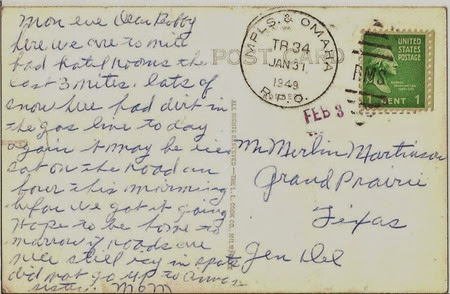 Mon eve Dear Bobby
here we are to nite
had hotel rooms the
last 3 nites. lots of
snow here had dirt in
the gas line to day
again it may be ice
sat on the road an
hour this morning
before we got it going
hope to be home to
morrow if roads are
nice still icy in spots
did not go up to
sisters. Mom
POST CARD
MPLS. & OMAHA
TR. 34
JAN 31
1949
R.P.O.
RMS
UNITED
STATES
POSTAGE
1 CENT 1
FEB 3
ALL RIGHTS RESERVED—THE L. L. COOK CO. MILWAUKEE
Mr Merlin Martinson
Grand Prairie
Texas
Gen Del